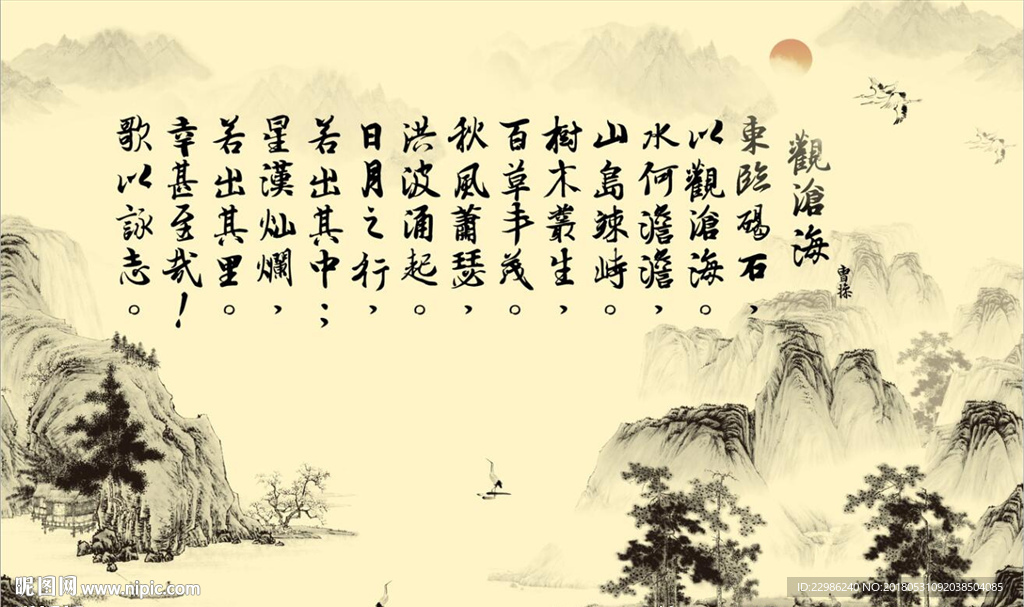 觀滄海
曹操
東臨碣石，
以觀滄海。
水何澹澹，
山島竦峙。
樹木叢生，
百草丰茂。
秋風蕭瑟，
洪波涌起。
日月之行，
若出其中；
星漢灿爛，
若出其里。
幸甚至哉！
歌以詠志。
昵图网 www.nipic.com
ID:22986240 NO:20180531092038504085